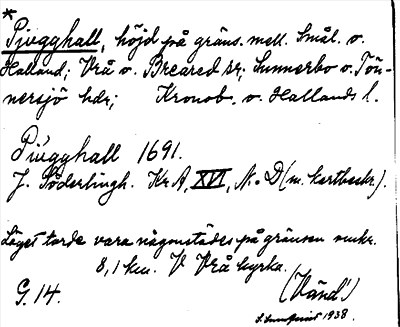 *
Pjugghall, höjd på gräns. mell. Smål. o.
Halland; Vrå o. Breared sr; Sunnerbo o. Tön-
nersjö hdr; Kronob. o. Hallands l.
Piugghall 1691.
J. Söderlingh. Kr. A, XVI, N:o D (m. kartbeskr.).
Läget torde vara någonstädes på gränsen
8,1 km. V Vrå kyrka.
G. 14. (Vänd!)
1938.